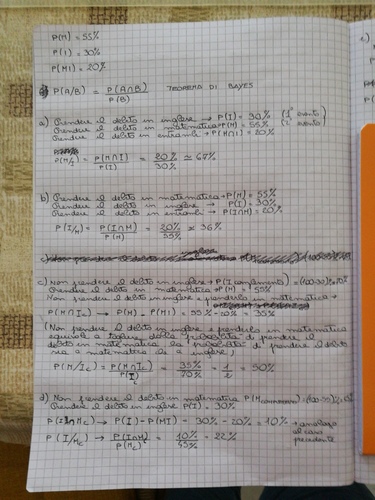 P(M) = 55%
P(I) = 30%
P(MI) = 20%
P(A/B) = P(A∩B) / P(B) TEOREMA DI BAYES
a) Prendere il debito in inglese → P(I) = 30% (1° evento)
Prendere il debito in matematica → P(M) = 55% (2° evento)
Prendere il debito in entrambi → P(M∩I) = 20%
P(M/I) = P(M∩I) / P(I) = 20% / 30% ≃ 67%
b) Prendere il debito in matematica → P(M) = 55%
Prendere il debito in inglese → P(I) = 30%
Prendere il debito in entrambi → P(I∩M) = 20%
P(I/M) = P(I∩M) / P(M) = 20% / 55% ≃ 36%
c) Non prendere il debito in inglese → P(I complemento) = (100-30)% = 70%
Prendere il debito in matematica → P(M) = 55%
Non prendere il debito in inglese e prenderlo in matematica →
P(M∩Ic) → P(M) - P(MI) = 55% - 20% = 35%
(Non prendere il debito in inglese e prenderlo in matematica
equivale a togliere dalla probabilità di prendere il
debito in matematica la probabilità di prendere il debito
sia a matematica che a inglese)
P(M/Ic) = P(M∩Ic) / P(Ic) = 35% / 70% = 1/2 = 50%
d) Non prendere il debito in matematica P(M complemento) = (100-55)%
Prendere il debito in inglese P(I) = 30%
P(I∩Mc) → P(I) - P(MI) = 30% - 20% = 10% → analogo
al caso
precedente
P(I/Mc) → P(I∩M) / P(Mc) = 10% / 45% = 22%